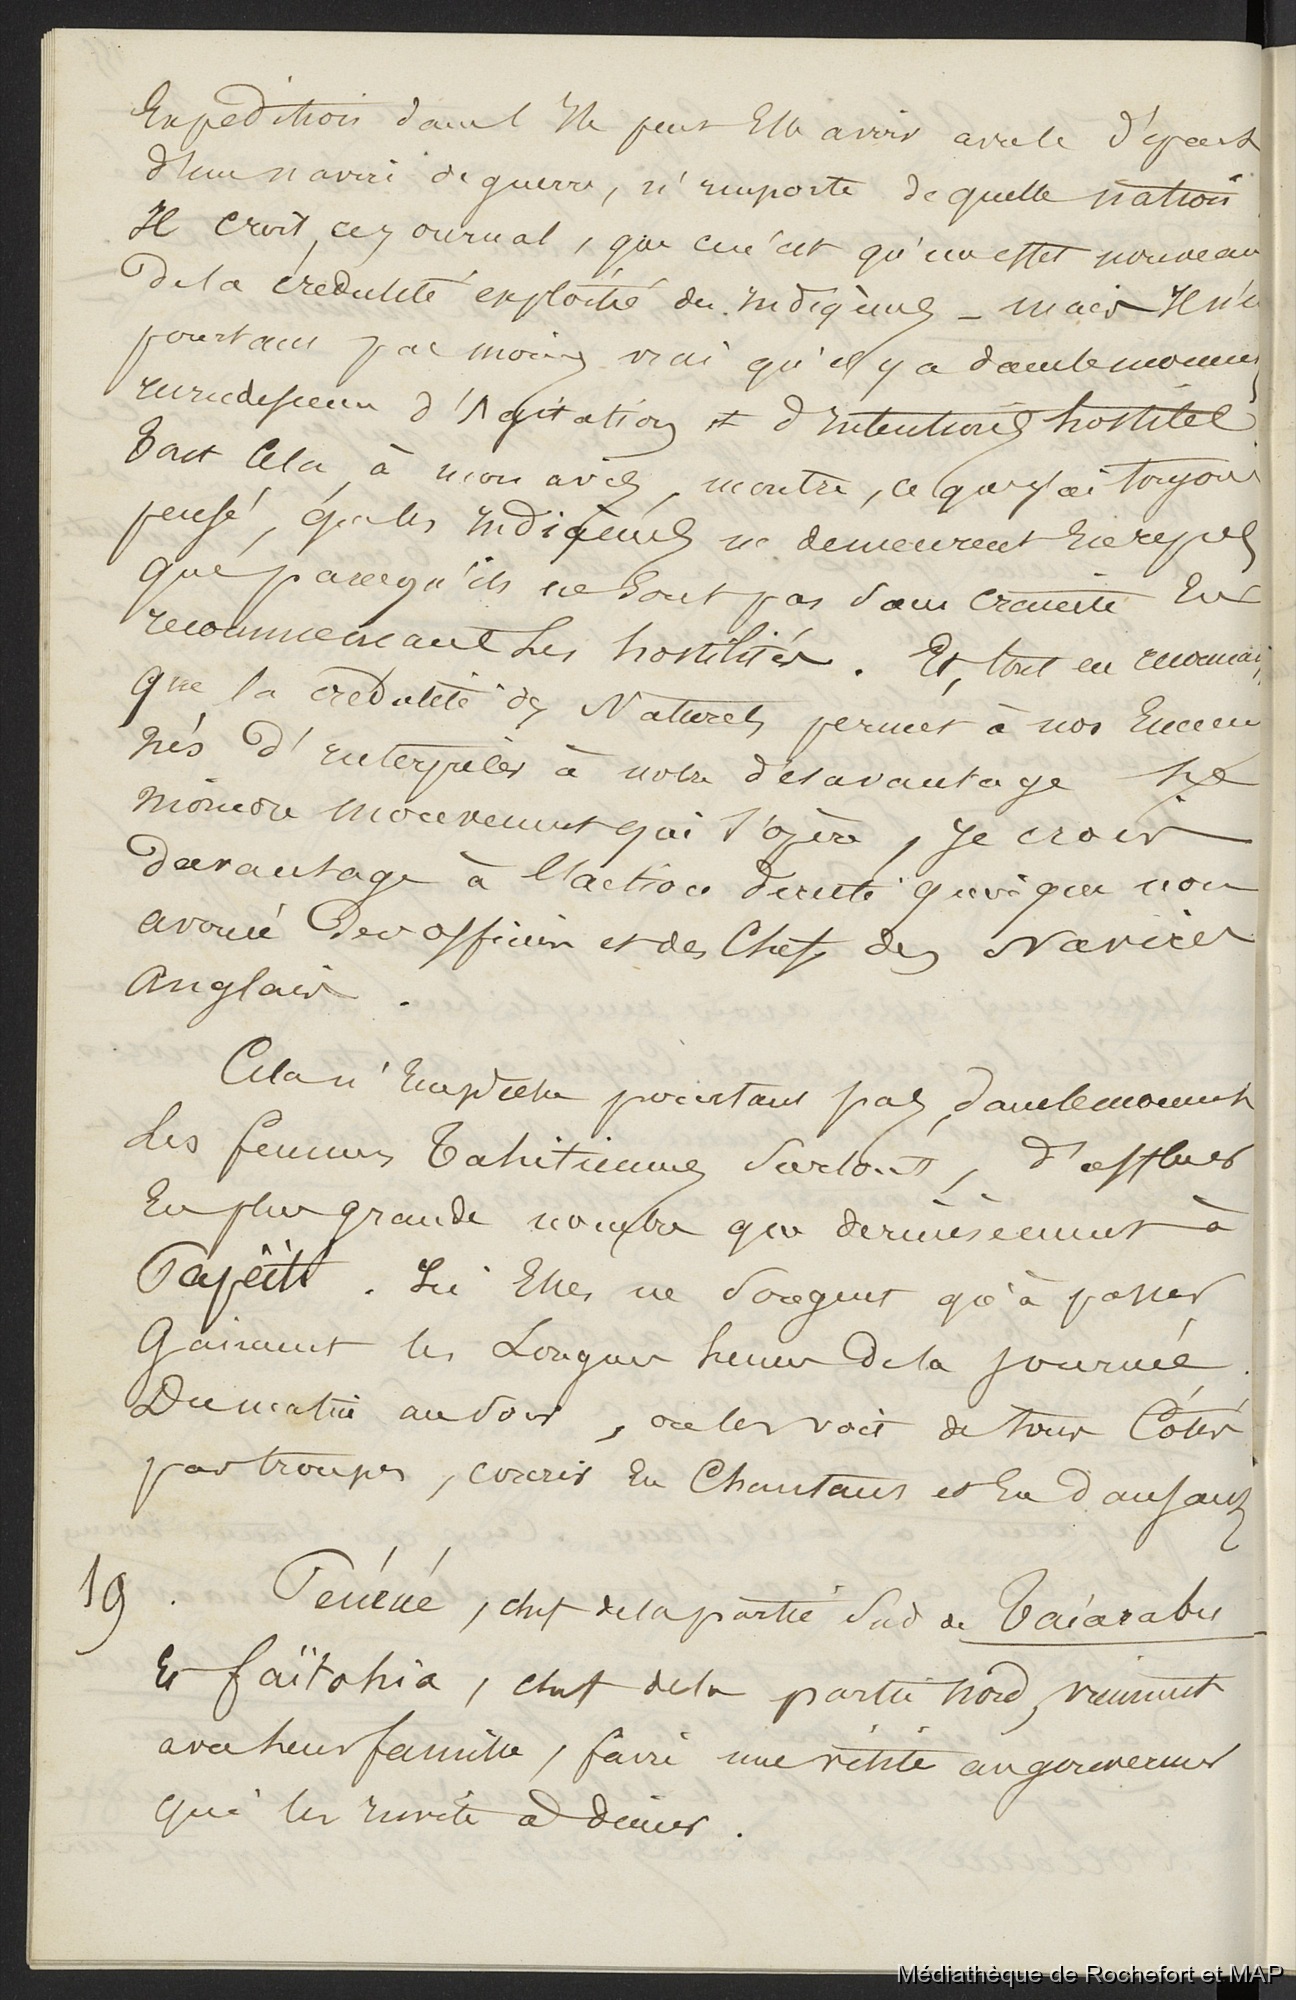 Expédition dans l'Ile peut Etre avoir avec le départ
d'un navire de guerre, n'importe de quelle nation
Il croit, ce journal, que ce n'est qu'un effet nouveau
de la crédulité exploité des Indigènes _ mais Il n'e
pourtant pas moins vrai qu'il y a dans le moment
d'Agitation et d'intentions hostiles.
Tout Cela, à mon avis, montre, ce que j'ai toujour
pensé, que les Indigènes ne demeurent En repos
que parcequ'ils ne sont pas sans crainte En
recommencant Les hostilités. Et, tout en reconnais
que la crédulité des Naturels permet à nos Ennem
d'interprêter à notre désavantage Le
moindre mouvement qui s'opère, je crois
davantage à l'action directe quoique non
avoué des officiers et des Chefs des Navires
Anglais.
Cela n'Empêche pourtant pas, dans le moment
Les femmes Tahitiennes surtout, d'affluer
En plus grande nombre que dernièrement à
Papéïti. Ici Elles ne songent qu'à passer
Gaiment les Longues heures de la journée.
Du matin au soir, on les voit de tous Côtés
par troupes, courir En Chantant et En dansant
19. Ténéné, chef de la partie Sud de Taïarabu
Et faïtohia, chef de la partie nord, viennent
avec leur famille, faire une visite au gouverneur
qui les invite à diner.
Médiathèque de Rochefort et MAP